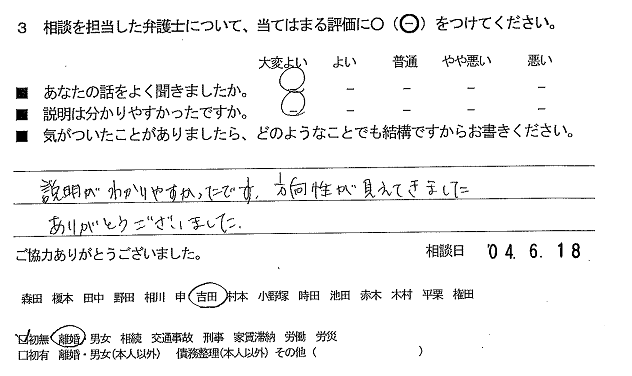 3 相談を担当した弁護士について、当てはまる評価に○(⊖)をつけてください。
大変よい よい 普通 やや悪い 悪い
■ あなたの話をよく聞きましたか。 － － － － －
■ 説明は分かりやすかったですか。 － － － － －
■ 気がついたことがありましたら、どのようなことでも結構ですからお書きください。
説明がわかりやすかったです。方向性が見えてきました
ありがとうございました。
ご協力ありがとうございました。 相談日 '04.6.18
森田 榎本 田中 野田 相川 申 吉田 村本 小野塚 時田 池田 赤木 木村 平栗 権田
□初無 離婚・男女 相続 交通事故 刑事 家賃滞納 労働 労災
□初有 離婚・男女(本人以外) 債務整理(本人以外) その他 ( )